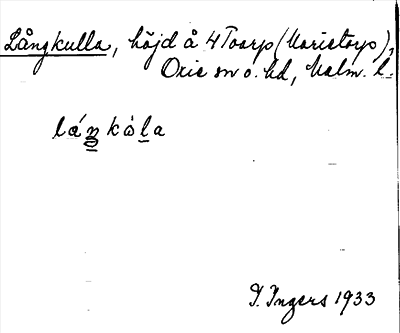 Långkulla, höjd å 4 Toarp (Maristorp),
Oxie sn o. hd, Malm. l.
láŋ̲kȧl̲a
I. Ingers 1933